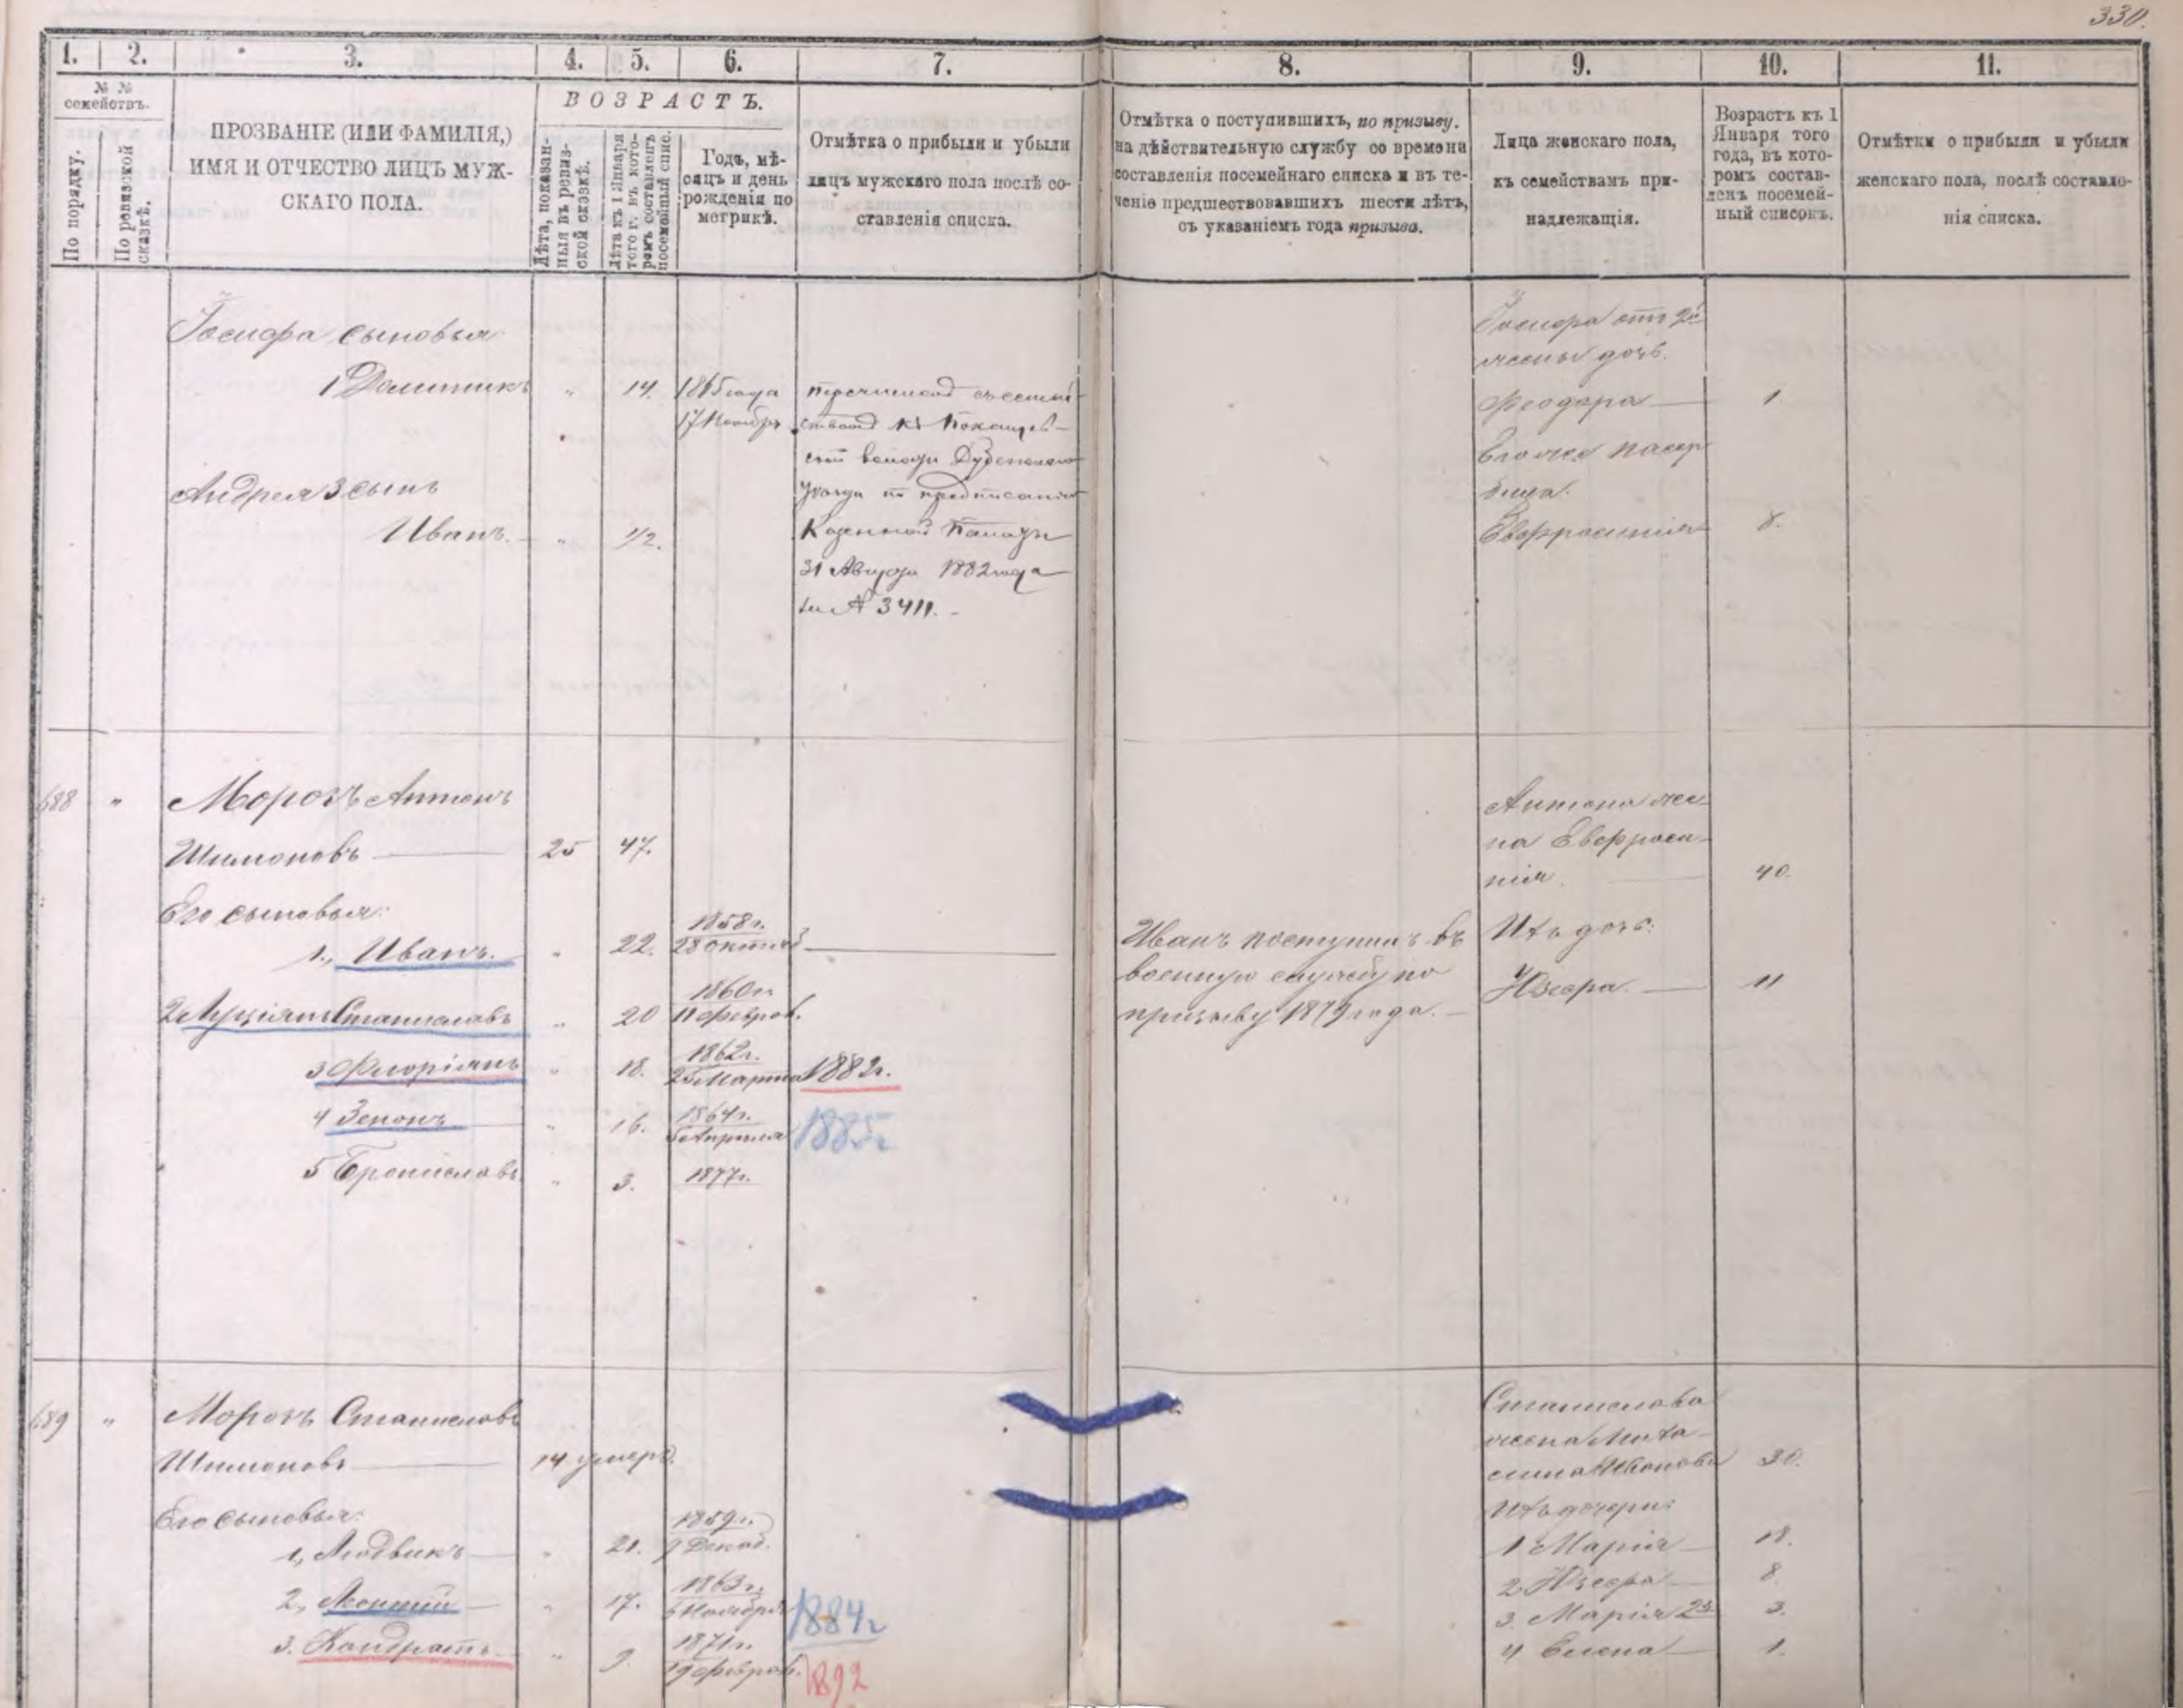 330.
1. 2. 3. 4. 5. 6. 7. 8. 9. 10. 11.
№ № семействъ.
По порядку.
По ревизской сказкѣ.
ПРОЗВАНІЕ (ИЛИ ФАМИЛІЯ,)
ИМЯ И ОТЧЕСТВО ЛИЦЪ МУЖ-
СКАГО ПОЛА.
ВОЗРАСТЪ.
Лѣта, показан-
ныя въ ревиз-
ской сказкѣ.
Лѣта къ 1 Января
того г. въ кото-
ромъ составленъ
посемейный спис.
Годъ, мѣ-
сяцъ и день
рожденія по
метрикѣ.
Отмѣтка о прибыли и убыли
лицъ мужскаго пола послѣ со-
ставленія списка.
Отмѣтка о поступившихъ, по призыву.
на дѣйствительную службу со времени
составленія посемейнаго списка и въ те-
ченіе предшествовавшихъ шести лѣтъ,
съ указаніемъ года призыва.
Лица женскаго пола,
къ семействамъ при-
надлежащія.
Возрастъ къ 1
Января того
года, въ кото-
ромъ состав-
ленъ посемей-
ный списокъ.
Отмѣтки о прибыли и убыли
женскаго пола, послѣ составле-
нія списка.
Іосифа сыновья
1 Доминикъ " 14. 1865 года
17 Ноябр.
Андрея 3 сынъ
Иванъ. " 1/2.
перечислен съ семей-
ством къ
Дубенскаго
уѣзда по предписанію
Казенной Палаты
31 Августа 1882 года
за № 3411.
Іосифа отъ 2й
жены дочь.
Феодора 1.
Его же падчер
бица.
Евфросинія 8.
688 " Морозъ Антонъ
Шимоновъ 25 47.
Его сыновья:
1., Иванъ. " 22. 1858 г.
28 Октяб
2 Луціянъ Станиславъ " 20 1860 г.
11 Феврал.
3 Флоріянъ " 18. 1862 г.
25 Марта 1882 г.
4 Зенонъ " 16. 1864 г.
5 Апрѣля 1885 г
5 Брониславъ " 3. 1877 г.
Иванъ поступилъ въ
военную службу по
призыву 1879 года.
Антона же-
на Евфроси-
нія. 40.
Ихъ дочь:
Юзефа 11
689 " Морозъ Станиславъ
Шимоновъ 14 умеръ.
Его сыновья:
1., Людвикъ " 21. 1859 г.
9 Декаб.
2., Леонтій " 17. 1863 г.
6 Ноября 1884 г
3. Кондратъ " 9. 1871 г.
19 Феврал. 1892
Станислава
жена
Иванова 30.
Ихъ дочери:
1 Марія 18.
2 Юзефа 8.
3. Марія 2я 3.
4 Елена 1.